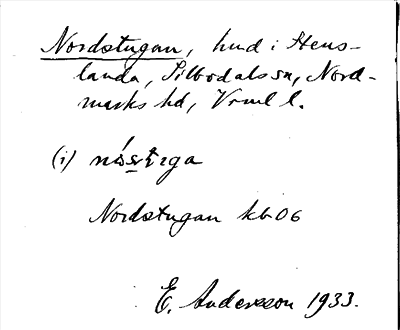 Nordstugan, hmd i Stens-
landa, Silbodals sn, Nord-
marks hd, Vrml l.
(i)
Nordstugan kb 06
E. Andersson 1933.